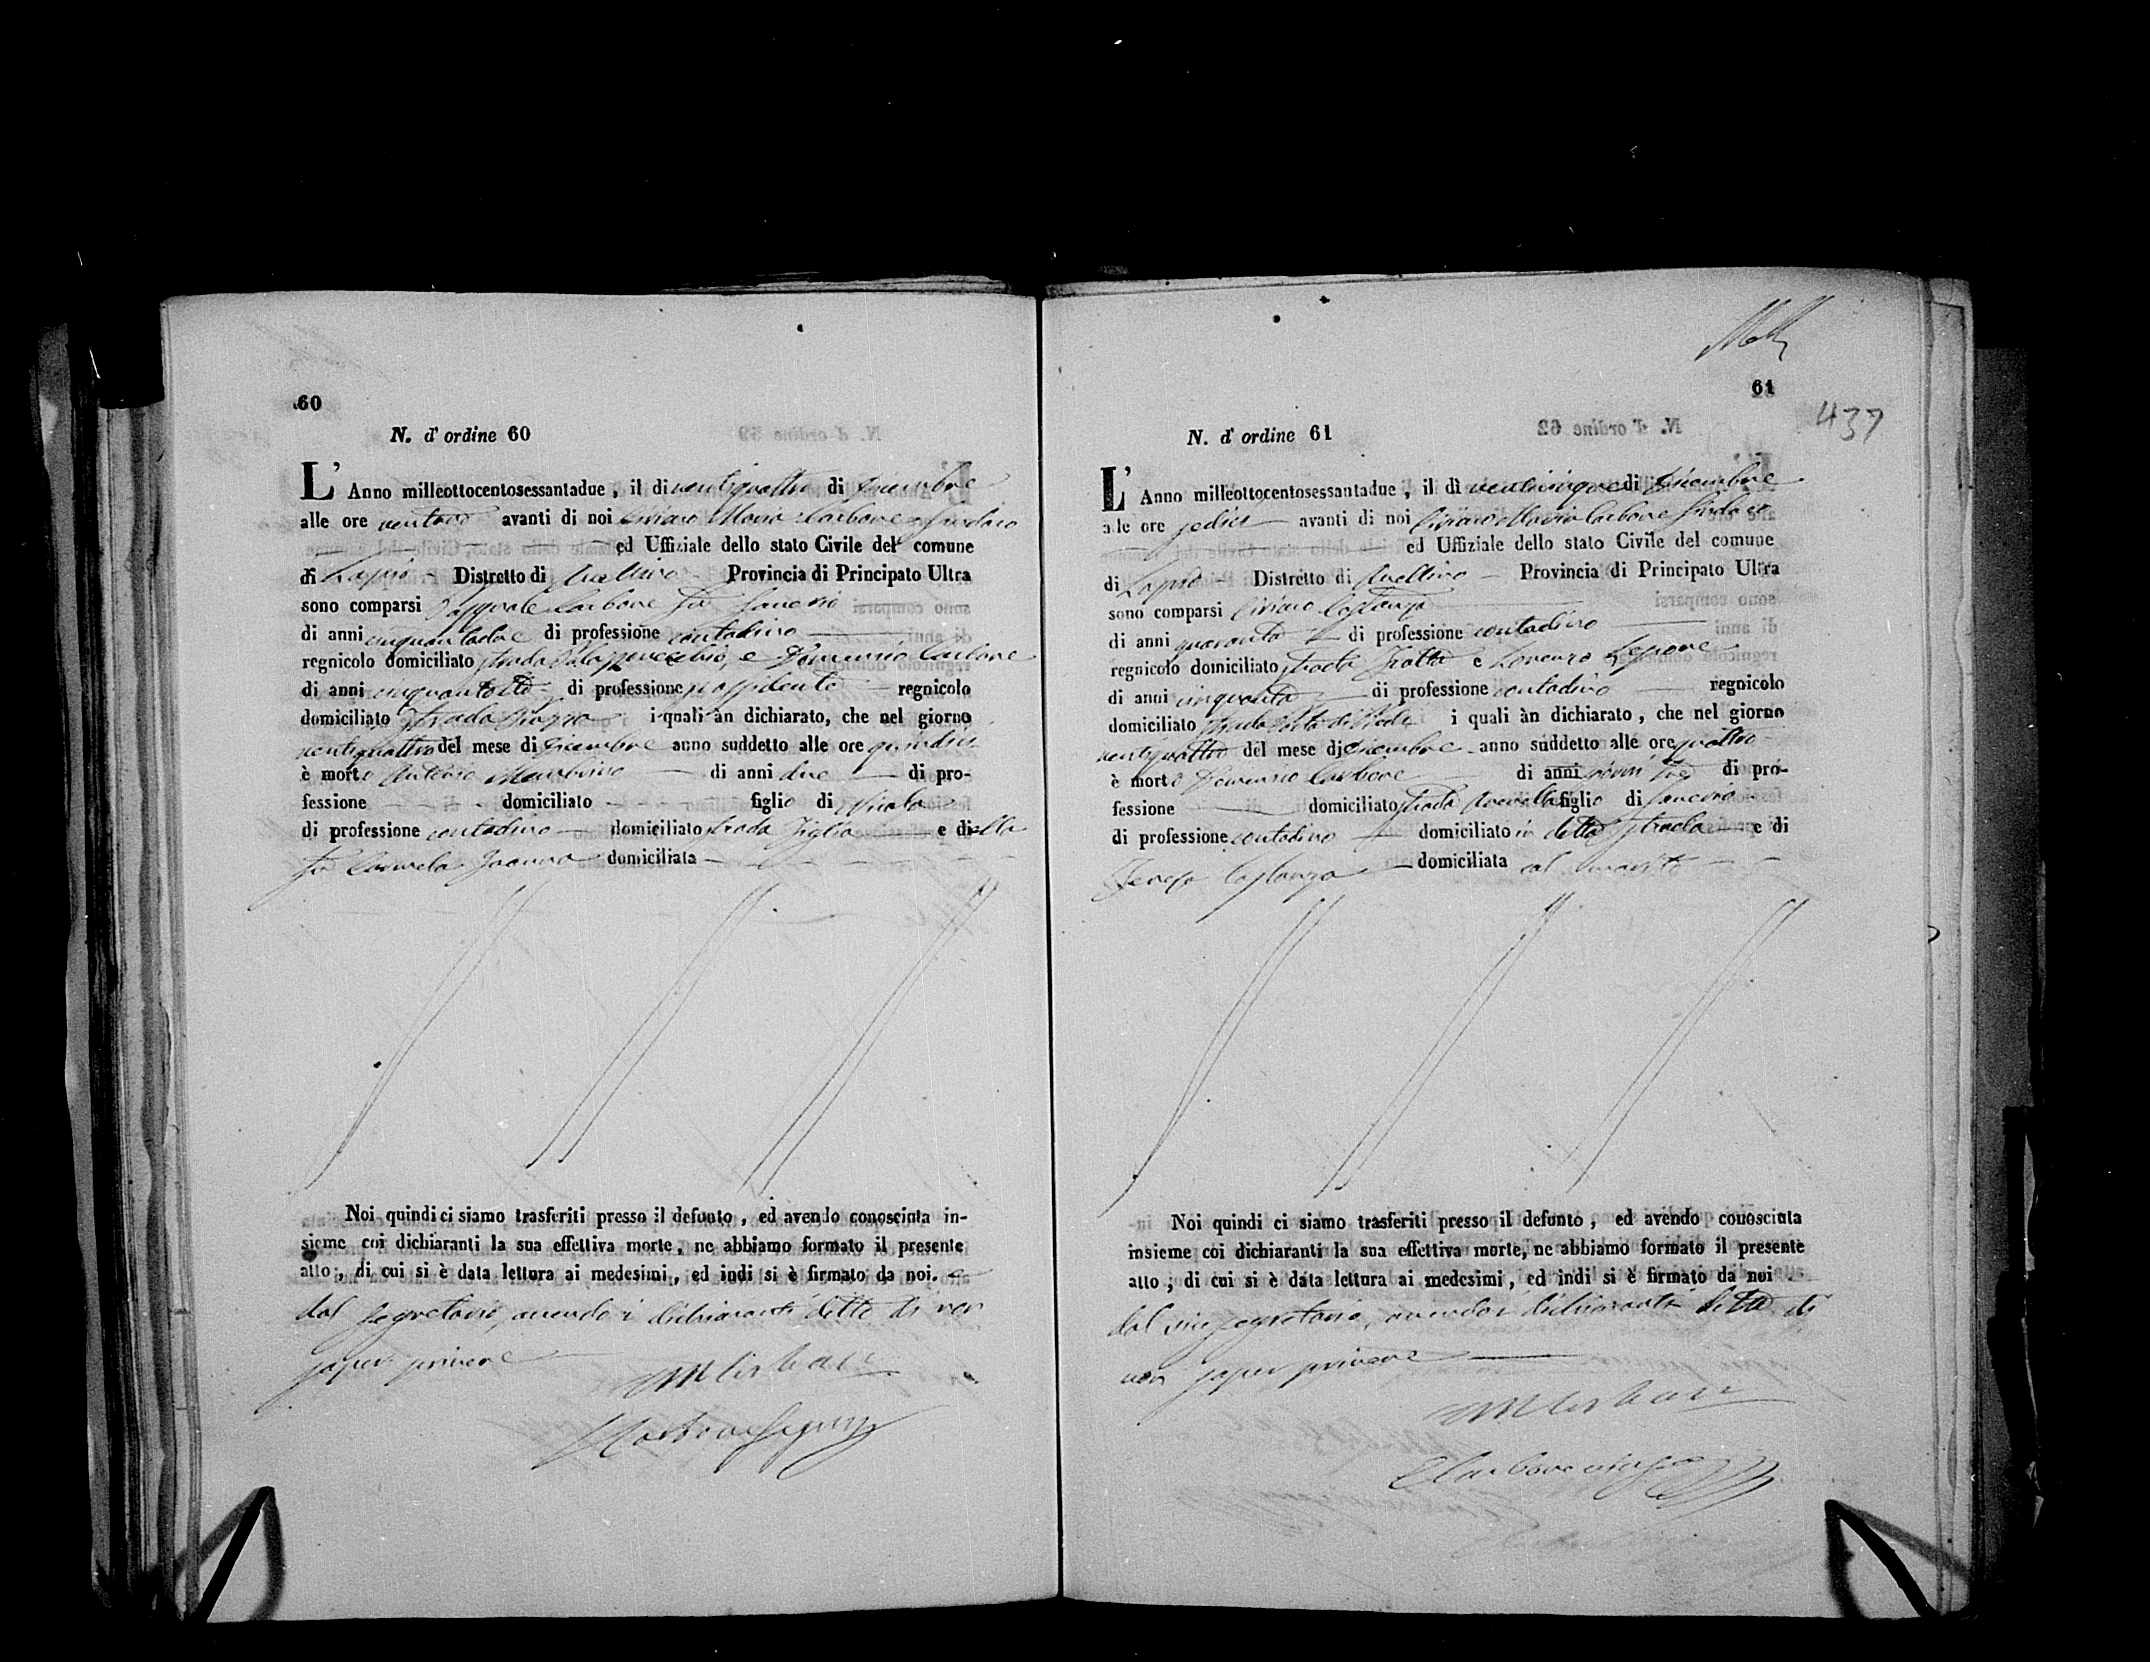 60
N. d' ordine 60
L' Anno milleottocentosessantadue, il di ventiquattro di Dicembre
alle ore ventuno avanti di noi Ciriaco Maria Carbone Sindaco
ed Uffiziale dello stato Civile del comune
di Lapio Distretto di Avellino Provincia di Principato Ultra
sono comparsi Pasquale Carbone fu
di anni di professione contadino
regnicolo domiciliato strada e Domenico Carbone
di anni cinquantotto di professione possidente regnicolo
domiciliato strada Piazza i quali àn dichiarato, che nel giorno
ventiquattro del mese di Dicembre anno suddetto alle ore quindici
è morto Antonio di anni due di pro-
fessione domiciliato figlio di Nicola
di professione contadino domiciliato strada e di ella
fu Carmela domiciliata
Noi quindi ci siamo trasferiti presso il defunto, ed avendo conosciuta in-
sieme coi dichiaranti la sua effettiva morte, ne abbiamo formato il presente
atto, di cui si è data lettura ai medesimi, ed indi si è firmato da noi. e
dal segretario, avendo i dichiaranti detto di non
saper scrivere
61
437
N. d' ordine 61
L' Anno milleottocentosessantadue, il dì venticinque di Dicembre
alle ore sedici avanti di noi Ciriaco Maria Carbone Sindaco
ed Uffiziale dello stato Civile del comune
di Lapio Distretto di Avellino Provincia di Principato Ultra
sono comparsi Ciriaco Costanza
di anni quaranta di professione contadino
regnicolo domiciliato strada e Lorenzo Lepore
di anni cinquanta di professione contadino regnicolo
domiciliato strada i quali àn dichiarato, che nel giorno
ventiquattro del mese di Dicembre anno suddetto alle ore quattro
è morto Domenico Carbone di anni di pro-
fessione domiciliato strada figlio di
di professione contadino domiciliato in detta strada e di
Teresa Costanza domiciliata col marito
Noi quindi ci siamo trasferiti presso il defunto, ed avendo conosciuta
insieme coi dichiaranti la sua effettiva morte, ne abbiamo formato il presente
atto; di cui si è data lettura ai medesimi, ed indi si è firmato da noi
dal vice segretario, avendo i dichiaranti detto di
non saper scrivere